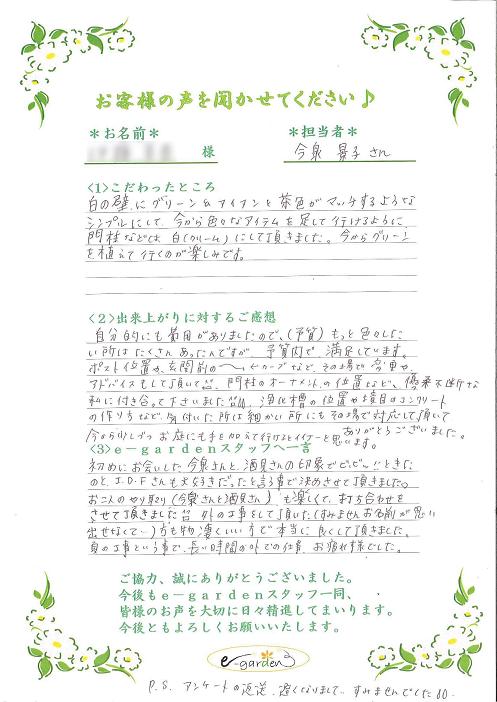 お客様の声を聞かせてください♪
＊お名前＊ ＊担当者＊
様 今泉 景子さん
<1>こだわったところ
白の壁にグリーン&アイアンと茶色がマッチするような
シンプルにして、今から色々なアイテムを足して行けるように
門柱などは白(クリーム)にして頂きました。今からグリーン
を植えて行くのが楽しみです。
<2>出来上がりに対するご感想
自分的にも希用がありましたので、(予算)もっと色々したい
い所はたくさんあったんですが、予算内で満足しています。
ポスト位置や、玄関前の カーブなど、その場で変更や
アドバイスもして頂いて 門柱のオーナメントの位置など、優柔不断な
私に付き合って下さいました 浄化槽の位置や境目のコンクリート
の作り方など、気付いた所は細かい所にもその場で対応して頂いて
ありがとうございました。
今から少しずつお庭にも手を加えて行けるとイイナーと思います。
<3>e－gardenスタッフへ一言
初めにお会いした今泉さんと、酒見さんの印象でビビビッ!!ときた
のと、I.D.Fさんも大好きだったと言う事で決めさせて頂きました。
お二人のやり取り(今泉さんと酒見さん)も楽しくて、打ち合わせを
させて頂きました 外の工事をして頂いた(すみませんお名前が思い
出せなくて…)方も物凄くいい方で本当に良くして頂きました。
夏の工事という事で、長い時間の外での仕事、お疲れ様でした。
ご協力、誠にありがとうございました。
今後もe－gardenスタッフ一同、
皆様のお声を大切に日々精進してまいります。
今後ともよろしくお願いいたします。
e-garden
P.S. アンケートの返送、遅くなりまして… すみませんでした